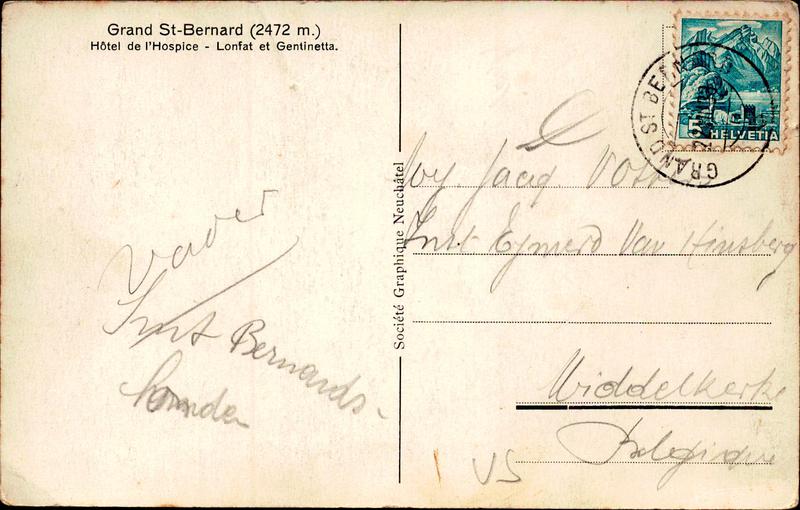 Grand St-Bernard (2472 m.)
Hôtel de l'Hospice - Lonfat et Gentinetta.
Vader
Sint Bernards-
honden
Société Graphique Neuchâtel
5
HELVETIA
GRAND ST BERN
Jaaq.
Inst Van Hinsberg
Middelkerke
Belgique
VS